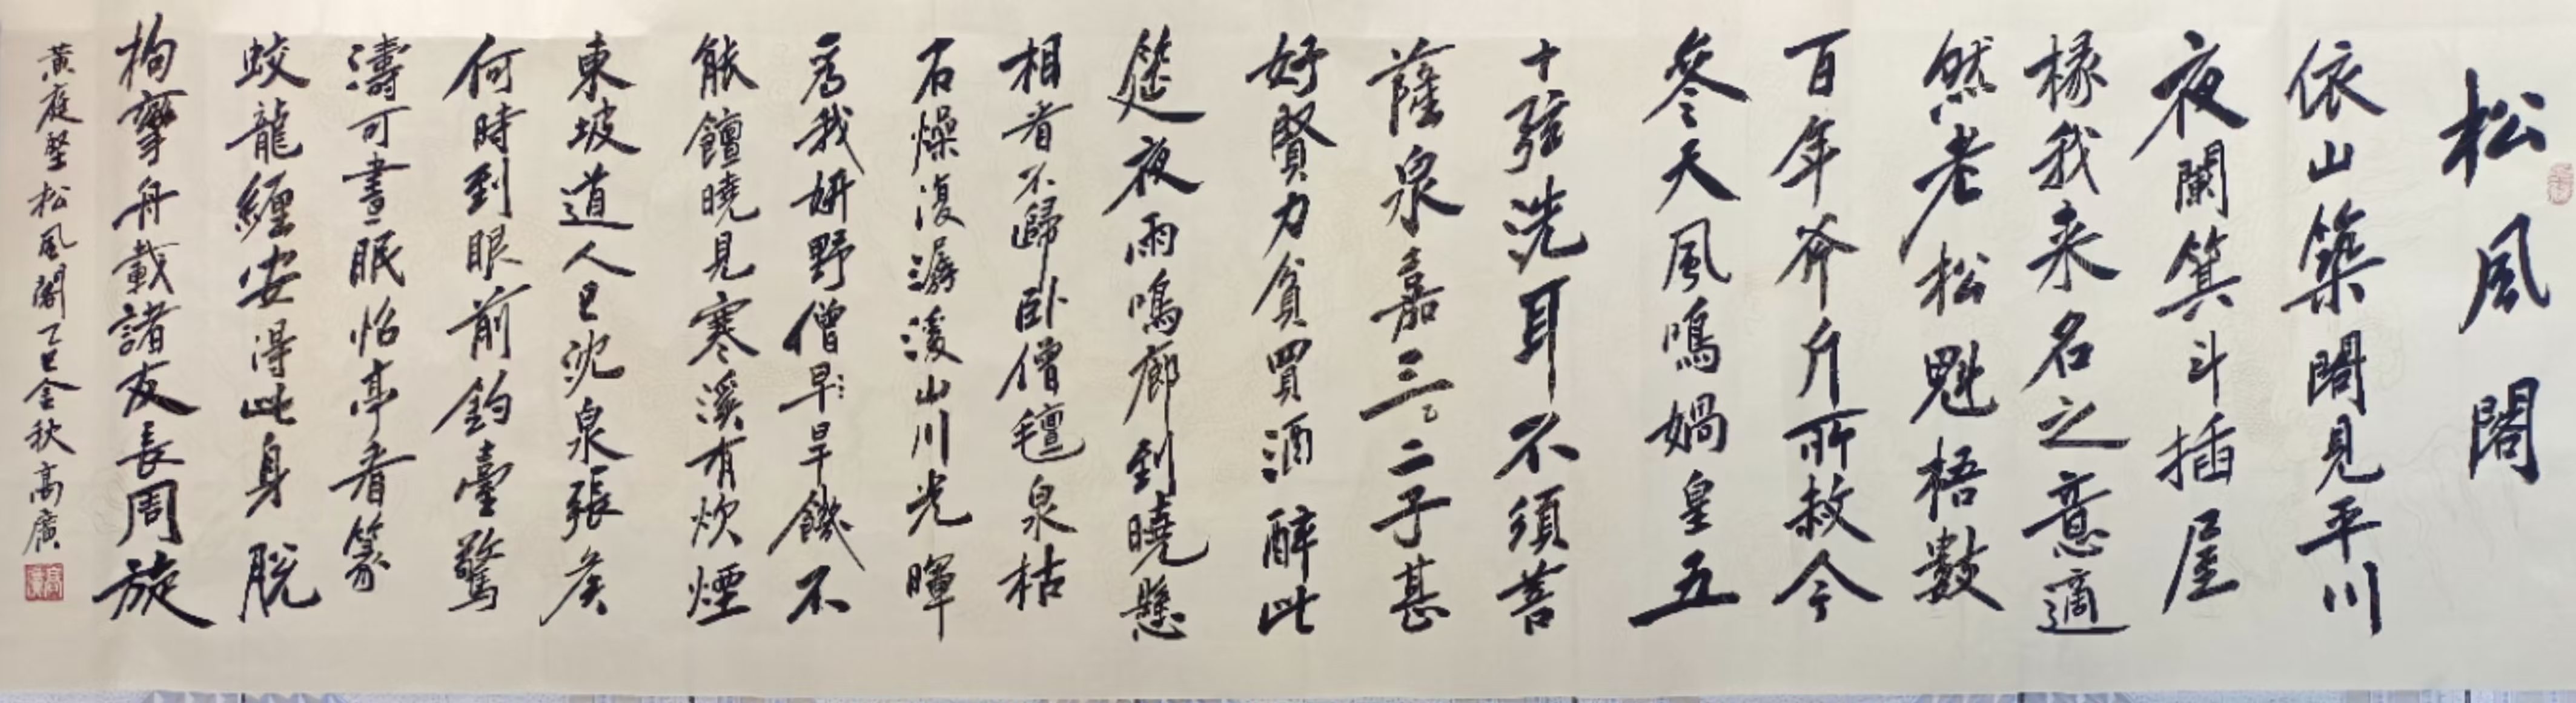 松風閣
依山築閣見平川
夜闌箕斗插屋
椽我来名之意適
然老松魁梧數
百年斧斤所赦今
參天風鳴媧皇五
十弦洗耳不須菩
薩泉嘉三〻二子甚
好賢力貧買酒醉此
筵夜雨鳴廊到曉懸
相看不歸卧僧氊泉枯
石燥復潺湲山川光暉
為我妍野僧早〻旱饑不
能饘曉見寒溪有炊煙
東坡道人已沈泉張矦
何時到眼前釣臺驚
濤可晝眠怡亭看篆
蛟龍纏安得此身脫
拘攣舟載諸友長周旋
黃庭堅松風閣乙巳金秋高廣
高廣